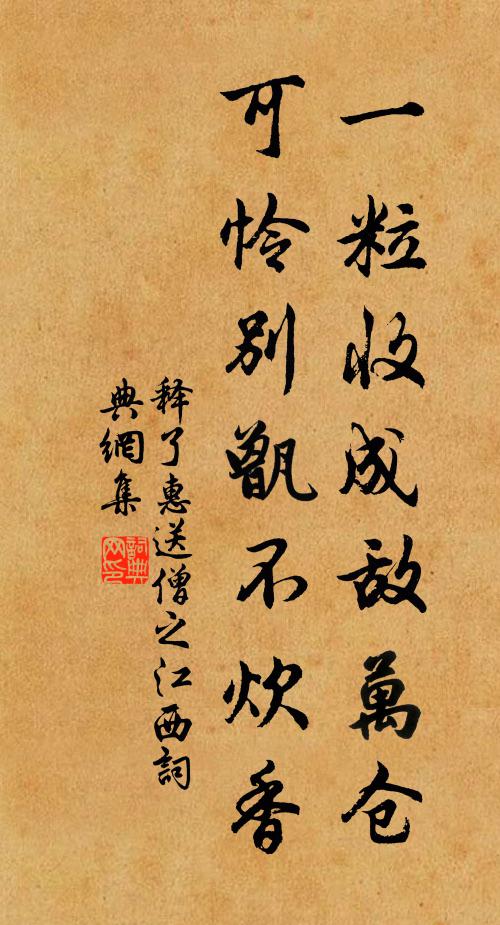 一粒收成敌萬仓
可怜别甑不炊香
释了惠送僧之江西詞
典網集
詞典
网印